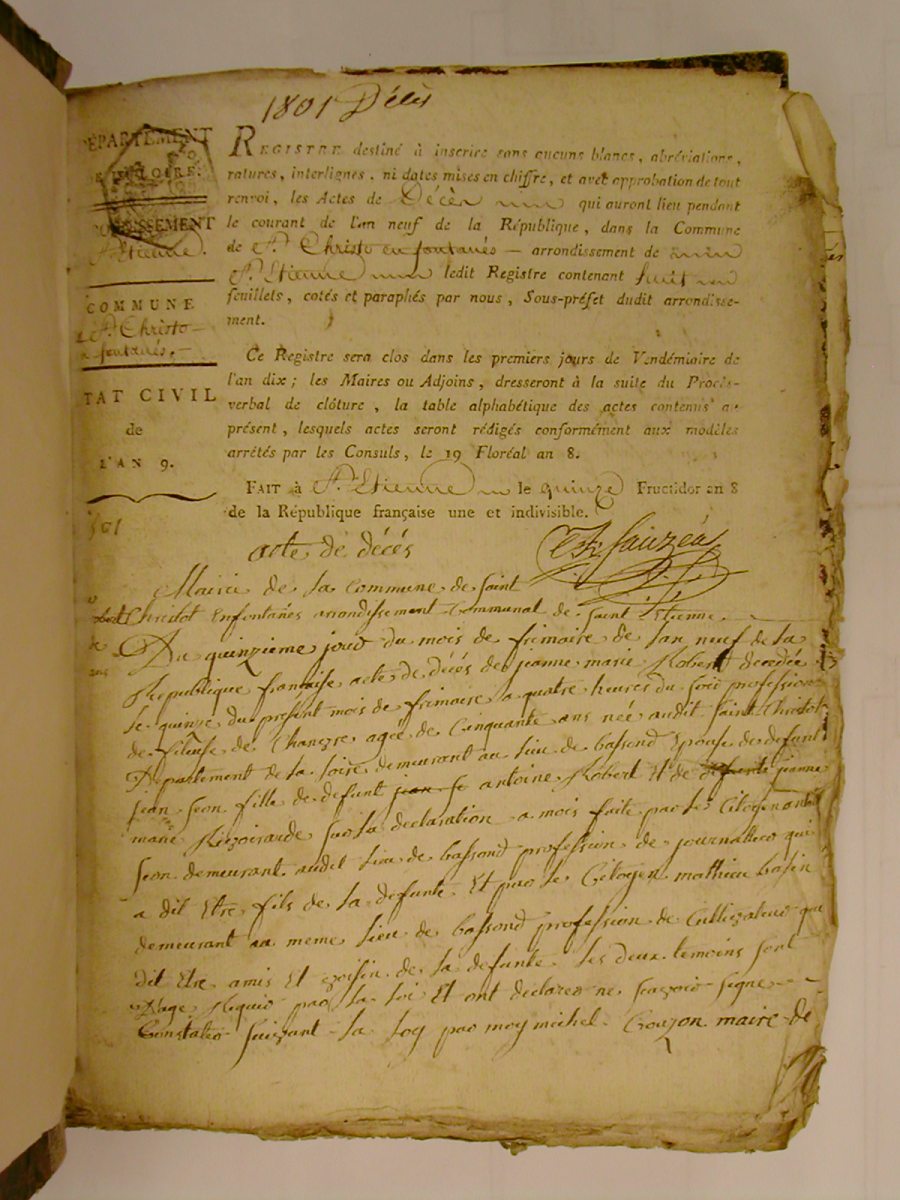 1801 Décès
DÉPARTEMENT
DE LA LOIRE.
ARRONDISSEMENT
St. Etienne.
COMMUNE
de St. Christo
en fontanés.
ÉTAT CIVIL
de
L'AN 9.
REGISTRE destiné à inscrire sans aucuns blancs, abréviations,
ratures, interlignes, ni dates mises en chiffre, et avec approbation de tout
renvoi, les Actes de Décès qui auront lieu pendant
le courant de l'an neuf de la République, dans la Commune
de St. Christo en fontanés — arrondissement de
St. Etienne ledit Registre contenant huit
feuillets, cotés et paraphés par nous, Sous-préfet dudit arrondisse-
ment.
Ce Registre sera clos dans les premiers jours de Vendémiaire de
l'an dix ; les Maires ou Adjoins, dresseront à la suite du Procès-
verbal de clôture, la table alphabétique des actes contenus au
présent, lesquels actes seront rédigés conformément aux modèles
arrétés par les Consuls, le 19 Floréal an 8.
FAIT à St. Etienne le quinze Fructidor an 8
de la République française une et indivisible.
Sauzéa
acte de décés
Mairie de la commune de saint
Christot Enfontanés arrondissement communal de saint Etienne
Du quinzieme jour du mois de frimaire de lan neuf de la
Republique française acte de décés de jeanne marie Robert decedée
le quinze du présent mois de frimaire a quatre heures du soir profession
de fileuse de Chanvre agée de Cinquante ans née audit Saint Christot
Département de la loire demeurant au lieu de bassond Epouse de defunt
jean seon fille de defunt jean se antoine Robert Et de defunte jeanne
marie sur la declaration a mois faite par le Citoyen
seon demeurant audit lieu de bassond profession de journallier qui
a dit Etre fils de la defunte Et par le Citoyen mathieu basin
demeurant au meme lieu de bassond profession de Cultivateur qui
dit Etre amis Et voisin de la defunte les deux temoins sont
D'age Requis par la loi Et ont declarer ne sçavoir signe
Constater suivant la loy par moy michel Gouzon maire de